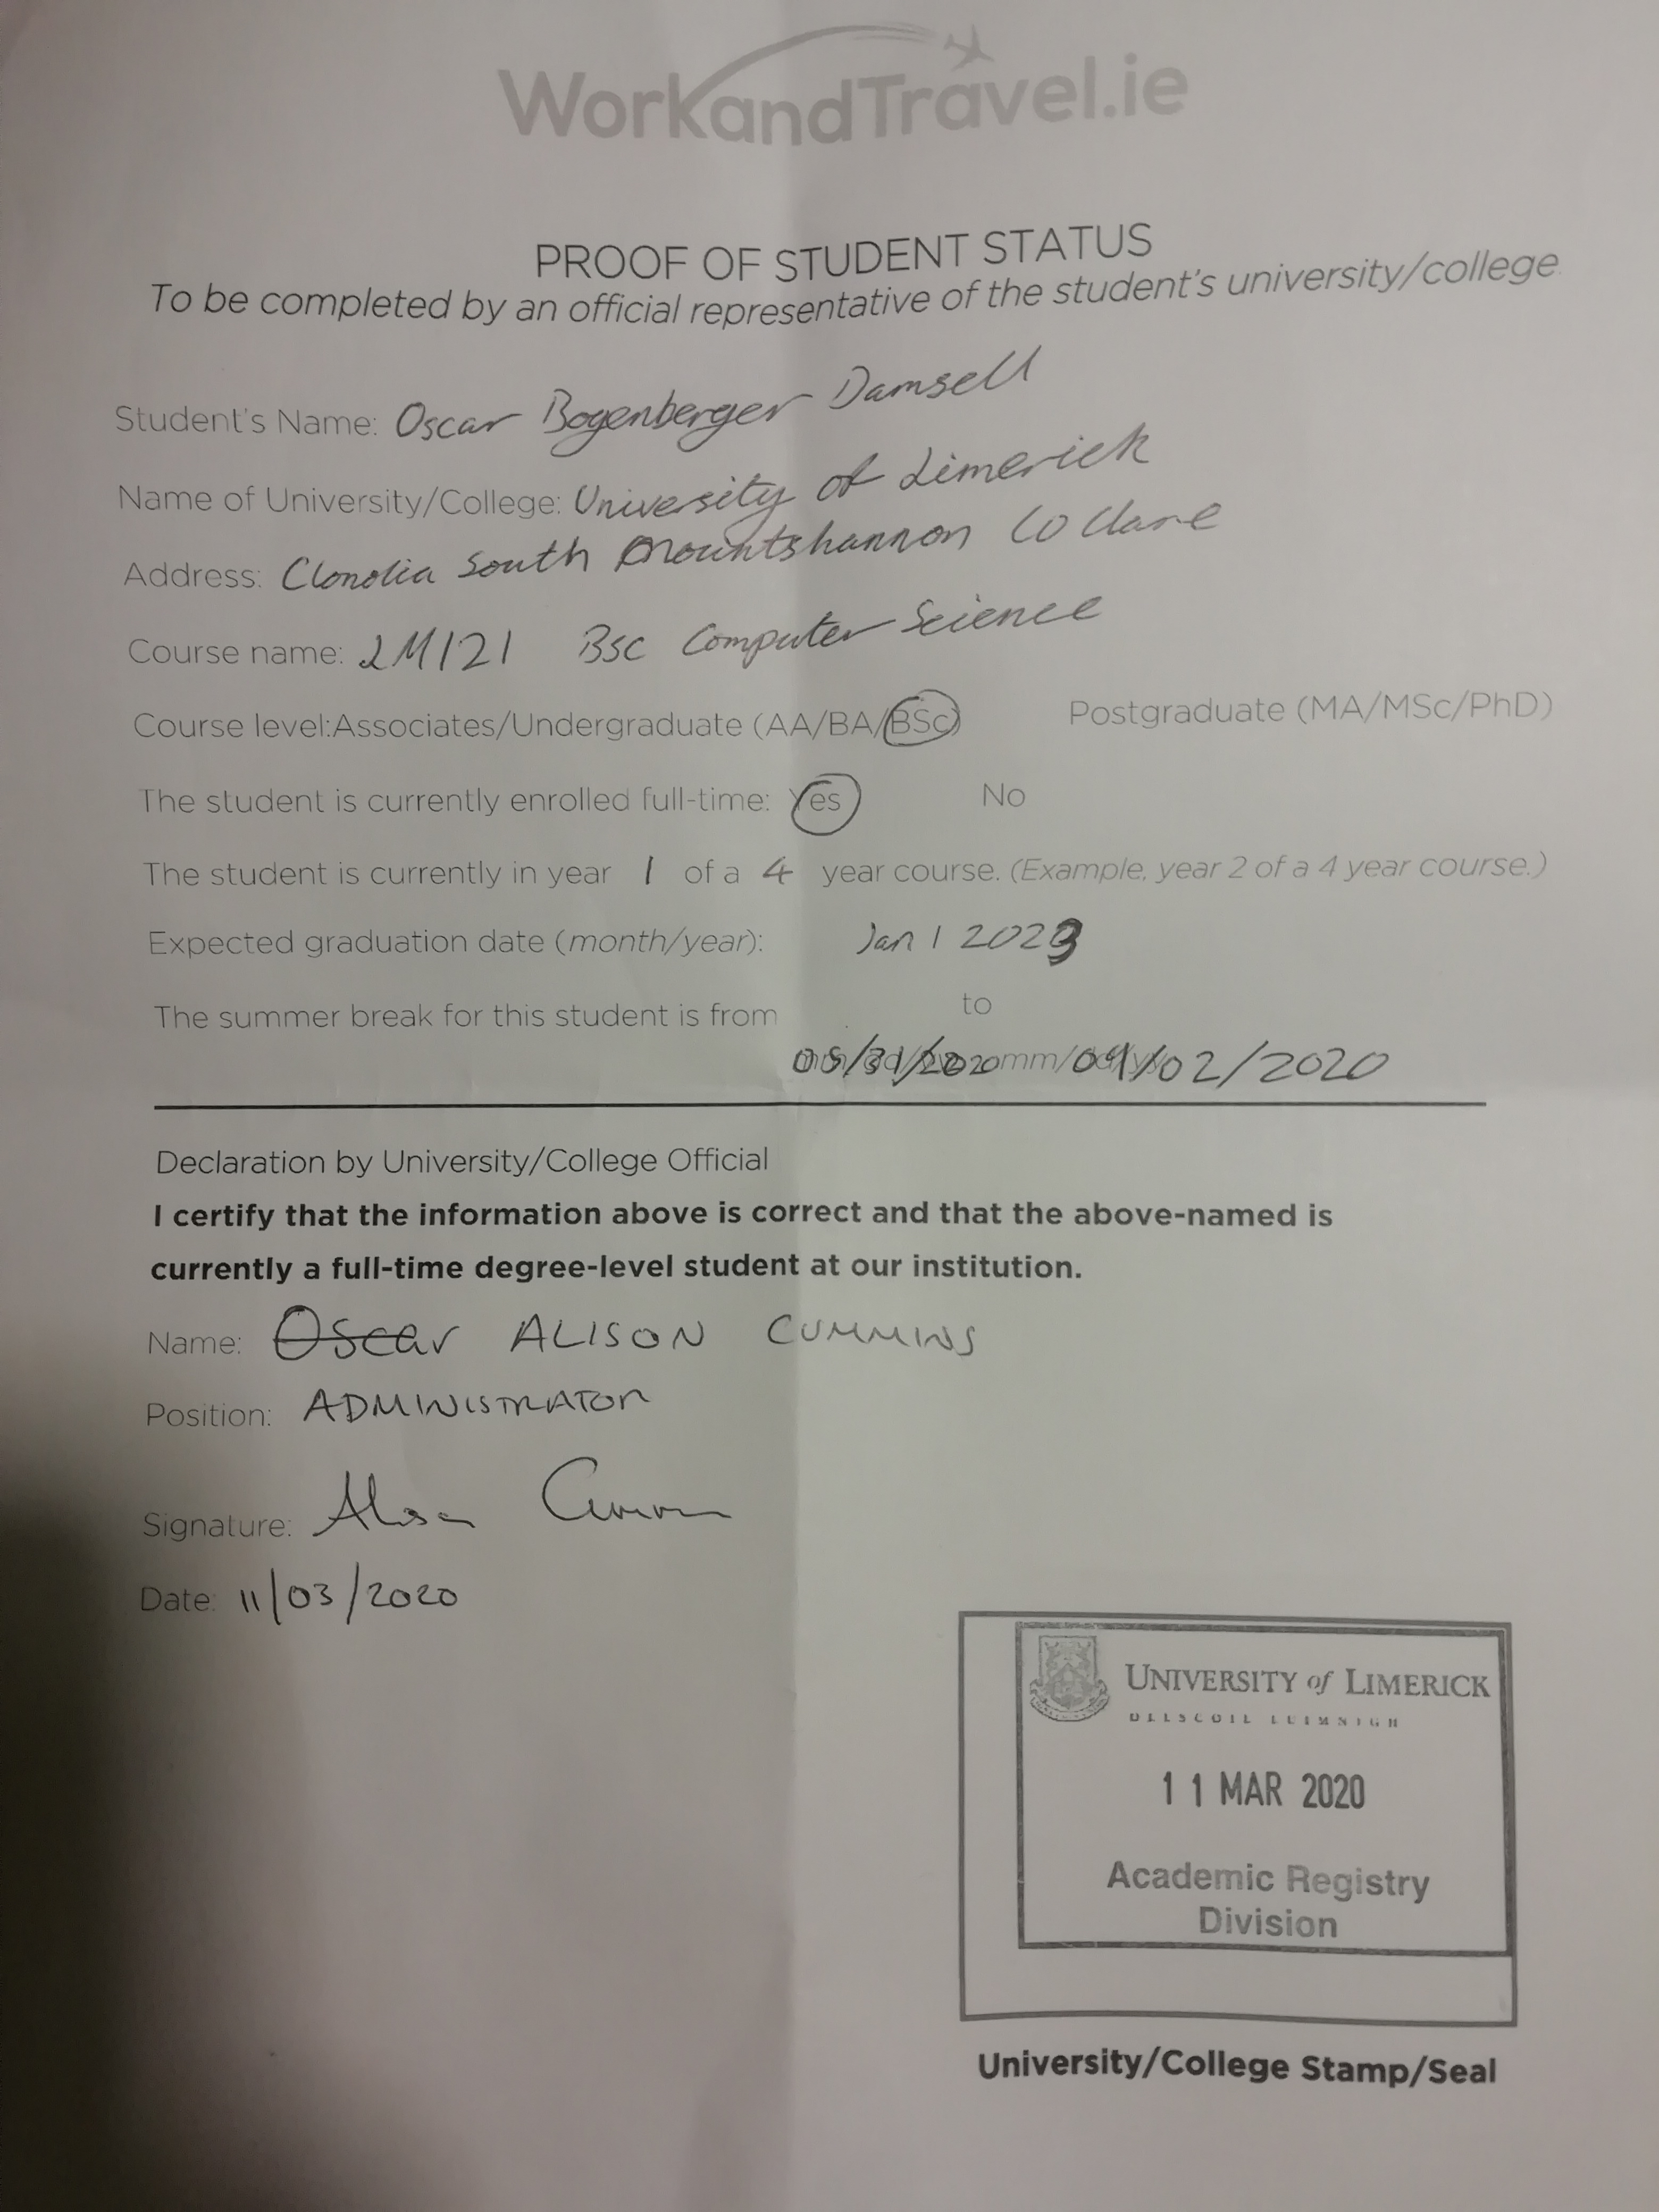 WorkandTravel.ie
PROOF OF STUDENT STATUS
To be completed by an official representative of the student's university/college
Student's Name: Oscar Bogenberger Damsell
Name of University/College: University of Limerick
Address: Clonolia South Mountshannon Co Clare
Course name: LM121 BSc Computer Science
Course level:Associates/Undergraduate (AA/BA/BSc) Postgraduate (MA/MSc/PhD)
The student is currently enrolled full-time: Yes No
The student is currently in year 1 of a 4 year course. (Example, year 2 of a 4 year course.)
Expected graduation date (month/year): Jan 1 2023
The summer break for this student is from to
05/31/2020 mm/ 09/02/2020
Declaration by University/College Official
I certify that the information above is correct and that the above-named is
currently a full-time degree-level student at our institution.
Name: Oscar ALISON CUMMINS
Position: ADMINISTRATOR
Signature: Alison Cummins
Date: 11/03/2020
UNIVERSITY of LIMERICK
OLLSCOIL LUIMNIGH
11 MAR 2020
Academic Registry
Division
University/College Stamp/Seal